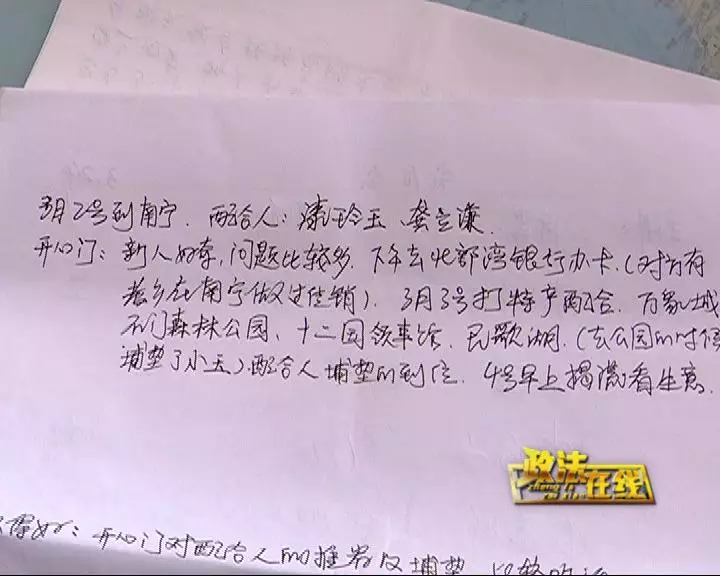 3月2号到南宁. 配合人: 漆玲玉 龚立谦
开心门: 新人好奇, 问题比较多. 下午去北部湾银行办卡.(对方有
老乡在南宁做过传销). 3月3号打特产配合. 万象城
石门森林公园、十二国领事馆、民歌湖.(去公园的时候
埔垫了小五).配合人埔垫的到位. 4号早上揭秘看生意.
政法在线
zheng fa
开心门对配合人的推荐及埔垫